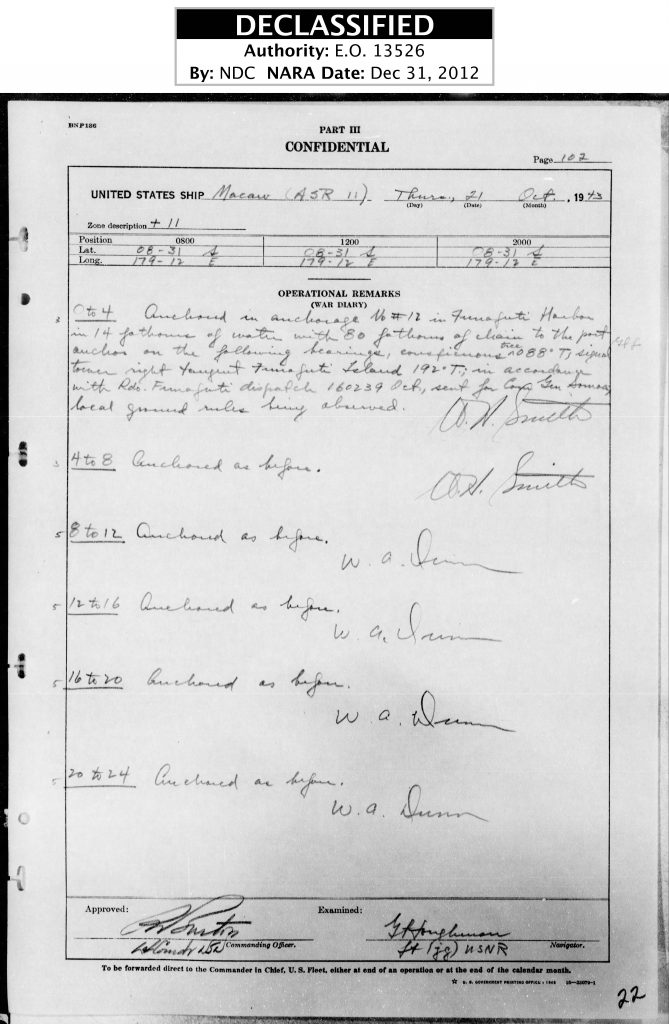 DECLASSIFIED
Authority: E.O. 13526
By: NDC NARA Date: Dec 31, 2012
BNP186
PART III
CONFIDENTIAL
Page 102
UNITED STATES SHIP Macaw (ASR 11) Thurs., 21 Oct., 1943
(Day) (Date) (Month)
Zone description + 11
Position 0800 1200 2000
Lat. 08-31 S 08-31 S 08-31 S
Long. 179-12 E 179-12 E 179-12 E
OPERATIONAL REMARKS
(WAR DIARY)
0 to 4 Anchored in anchorage No #12 in Funafuti Harbor
in 14 fathoms of water with 80 fathoms of chain to the port
anchor on the following bearings, conspicuous tree 088° T; signal
tower right tangent Funafuti Island 192° T; in accordance
with Rdo. Funafuti dispatch 160239 Oct, sent for Com Gen
local ground rules being observed.
W. H. Smith
4 to 8 Anchored as before.
W. H. Smith
8 to 12 Anchored as before.
W. A. Dunn
12 to 16 Anchored as before.
W. A. Dunn
16 to 20 Anchored as before.
W. A. Dunn
20 to 24 Anchored as before.
W. A. Dunn
Approved: Examined:
Lt Comdr USN Commanding Officer. Lt (jg) USNR Navigator.
To be forwarded direct to the Commander in Chief, U. S. Fleet, either at end of an operation or at the end of the calendar month.
U. S. GOVERNMENT PRINTING OFFICE
22